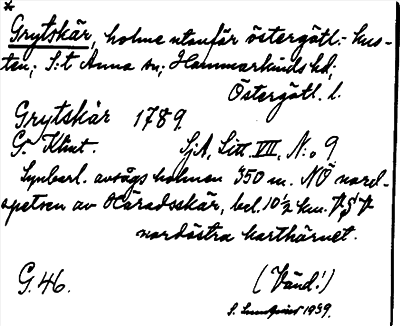 *
Grytskär, holme utanför östergötl:- kus-
ten; S:t Anna sn; Hammarkinds hd;
Östergötl. l.
Grytskär 1789.
G. Klint. SjA, Litt. VII, N:o 9
Synbarl. avsågs holmen 350 m. NÖ nord-
spetsen av Häradsskär, bel. 10 1/2 km.
nordöstra karthörnet.
G. 46. (Vänd!)
1939.